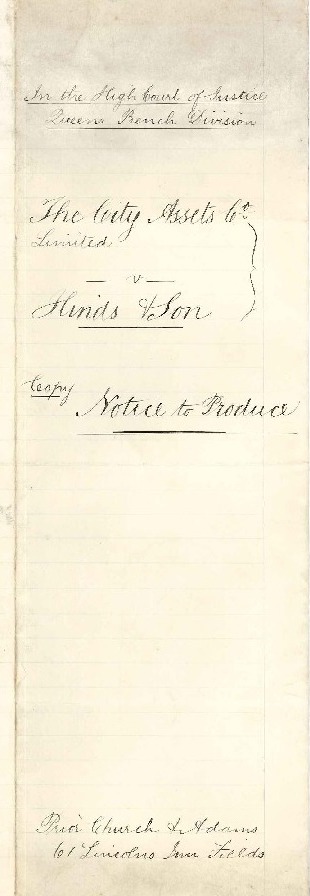 In the High Court of Justice
Queens Bench Division
The City Assets Co
Limited
v
Hinds & Son
Copy
Notice to Produce
Prior Church & Adams
61 Lincolns Inn Fields